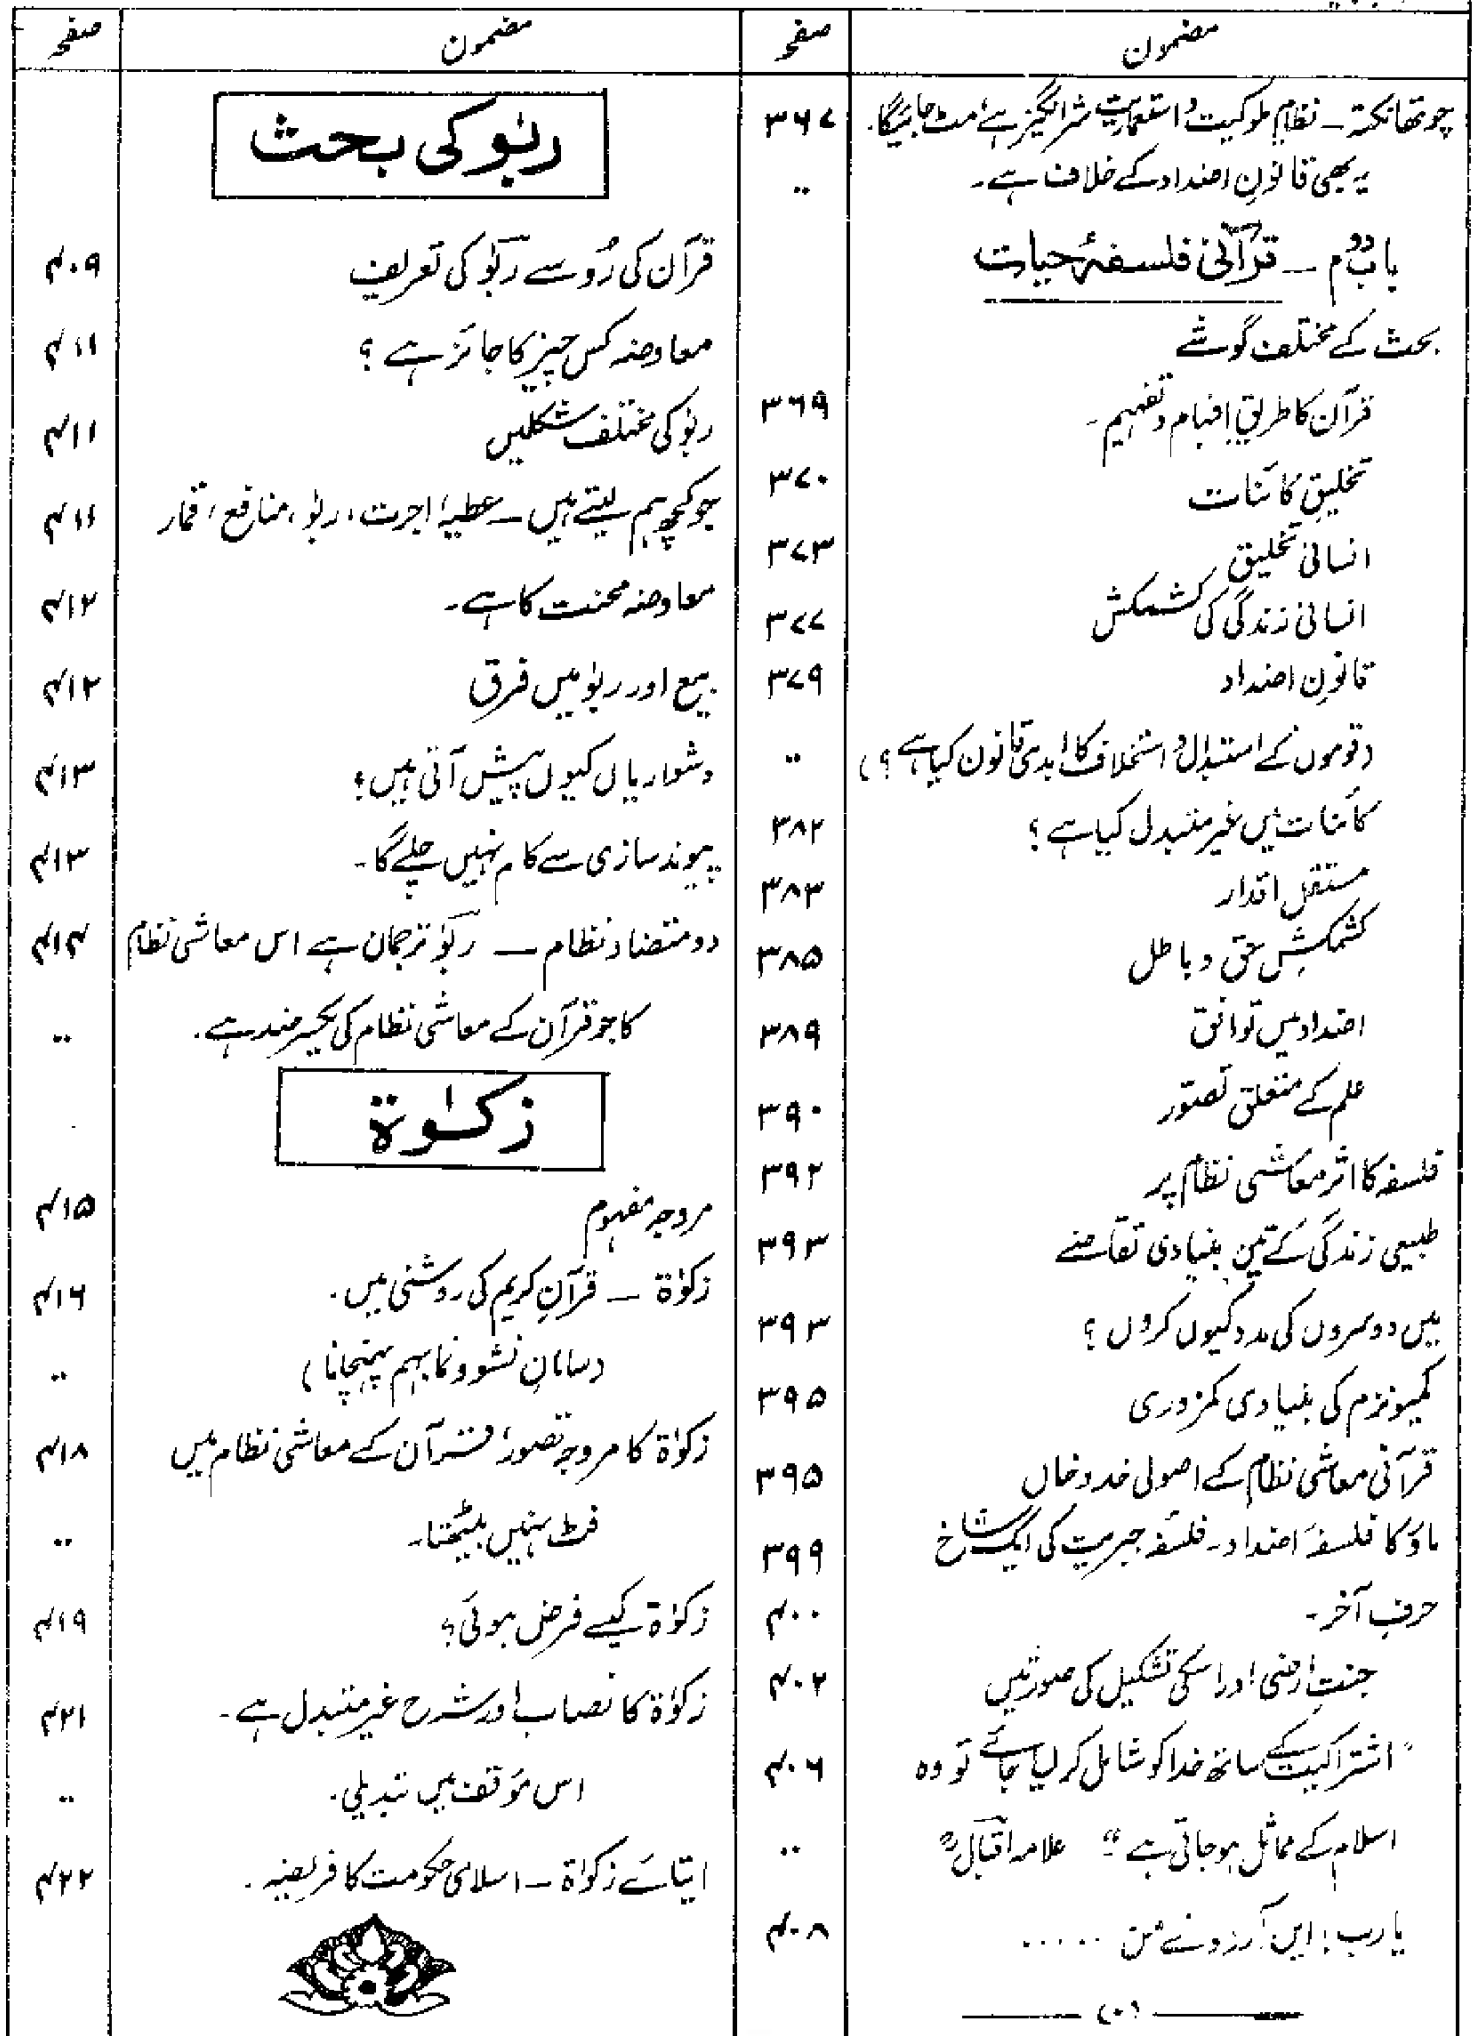 مضمون صفحہ
چوتھا نکتہ ـ نظامِ ملوکیت و استعماریت شر انگیز ہے مٹ جائیگا۔ ۳۶۷
یہ بھی قانونِ اضداد کے خلاف ہے۔ "
باب دوم ـ قرآنی فلسفۂ حیات
بحث کے مختلف گوشے
قرآن کا طریقِ افہام و تفہیم۔ ۳۶۹
تخلیقِ کائنات ۳۷۰
انسانی تخلیق ۳۷۳
انسانی زندگی کی کشمکش ۳۷۷
قانونِ اضداد ۳۷۹
(قوموں کے استبدال و استخلاف کا ابدی قانون کیا ہے؟) "
کائنات میں غیر متبدل کیا ہے؟ ۳۸۲
مستقل اقدار ۳۸۳
کشمکشِ حق و باطل ۳۸۵
اضداد میں توافق ۳۸۹
علم کے متعلق تصوّر ۳۹۰
فلسفہ کا اثر معاشی نظام پر ۳۹۲
طبیعی زندگی کے تین بنیادی تقاضے ۳۹۳
میں دوسروں کی مدد کیوں کروں؟ ۳۹۳
کمیونزم کی بنیادی کمزوری ۳۹۵
قرآنی معاشی نظام کے اصولی خد و خال ۳۹۵
ماؤ کا فلسفۂ اضداد۔ فلسفۂ جبریت کی ایک شاخ ۳۹۹
حرفِ آخر۔ ۴۰۰
جنتِ ارضی اور اسکی تشکیل کی صورتیں ۴۰۲
"اشتراکیت کے ساتھ خدا کو شامل کر لیا جائے تو وہ ۴۰۶
اسلام کے مماثل ہو جاتی ہے" علامہ اقبالؒ "
یارب! ایں آرزوئے من ..... ۴۰۸
(۰)
مضمون صفحہ
ربٰو کی بحث
قرآن کی رُو سے ربٰو کی تعریف ۴۰۹
معاوضہ کس چیز کا جائز ہے؟ ۴۱۱
ربٰو کی مختلف شکلیں ۴۱۱
جو کچھ ہم لیتے ہیں ـ عطیہ، اجرت، ربٰو، منافع، قمار ۴۱۱
معاوضہ محنت کا ہے۔ ۴۱۲
بیع اور ربٰو میں فرق ۴۱۲
دشواریاں کیوں پیش آتی ہیں؟ ۴۱۳
پیوند سازی سے کام نہیں چلے گا۔ ۴۱۳
دو متضاد نظام ـ ربٰو ترجمان ہے اس معاشی نظام ۴۱۴
کا جو قرآن کے معاشی نظام کی یکسر ضد ہے۔ "
زکوٰۃ
مروجہ مفہوم ۴۱۵
زکوٰۃ ـ قرآنِ کریم کی روشنی میں۔ ۴۱۶
(سامانِ نشو و نما بہم پہنچانا) "
زکوٰۃ کا مروجہ تصور، قرآن کے معاشی نظام میں ۴۱۸
فٹ نہیں بیٹھتا۔ "
زکوٰۃ کیسے فرض ہوئی؟ ۴۱۹
زکوٰۃ کا نصاب اور شرح غیر متبدل ہے۔ ۴۲۱
اس موقف میں تبدیلی۔ "
ایتائے زکوٰۃ ـ اسلامی حکومت کا فریضہ۔ ۴۲۲